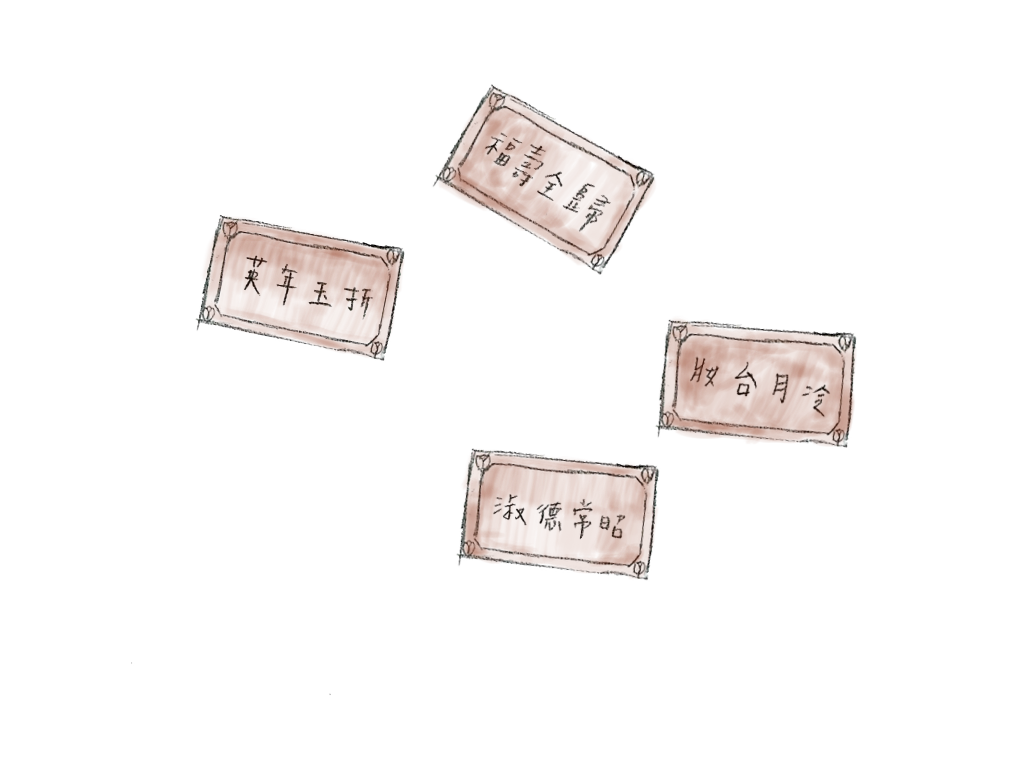 福壽全歸
英年玉折
妝台月冷
淑德常昭